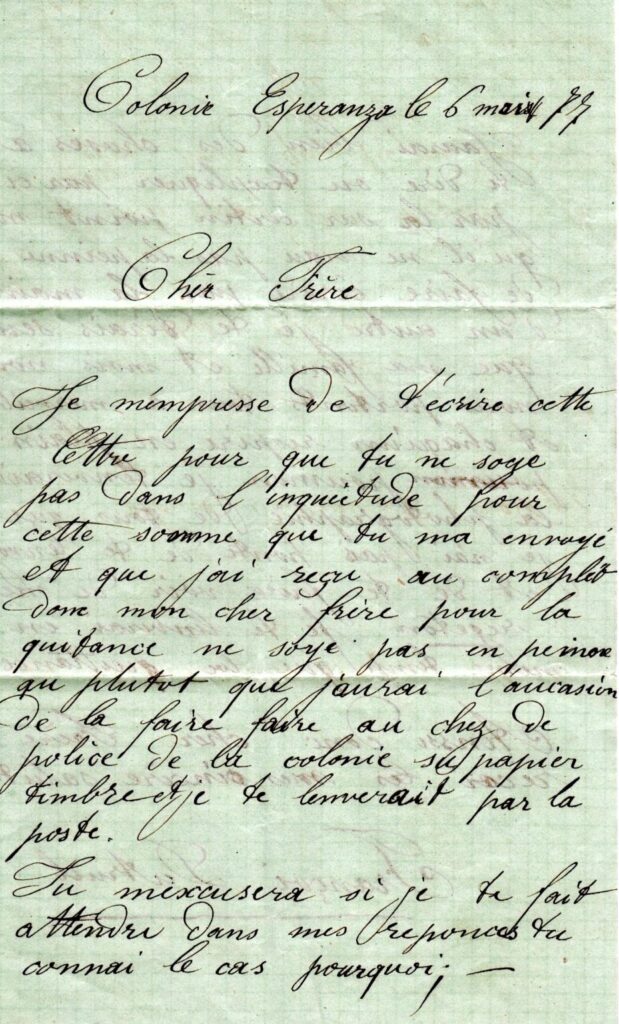 Colonie Esperanza le 6 mai 77
Chèr Frère
Je mémpresse de t'écrire cette
lettre pour que tu ne soye
pas dans l'inquietude pour
cette somme que tu ma envoyé
et que j'ai reçu au complèt
donc mon cher frère pour la
quitance ne soye pas en peinne
qu plutot que j'aurai l'aucasion
de la faire faire au chez de
police de la colonie su papier
timbre et je te lenverait par la
poste.
Tu mexcusera si je te fait
attendre dans mes reponces tu
connai le cas pourquoi; —